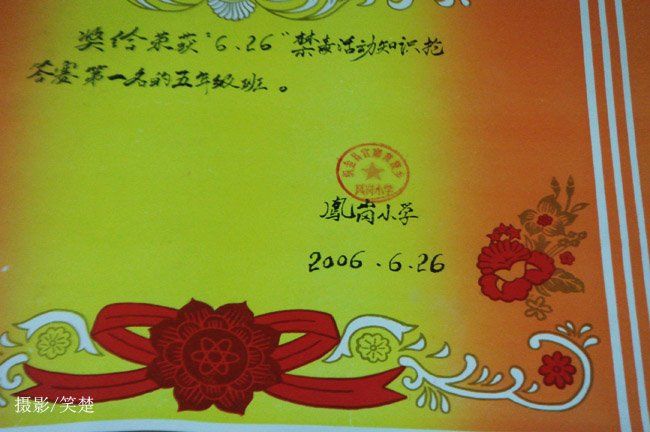 奖给荣获"6.26"禁毒活动知识抢
答赛第一名的五年级班。
凤岗小学
凰岗小学
2006.6.26
摄影/笑楚